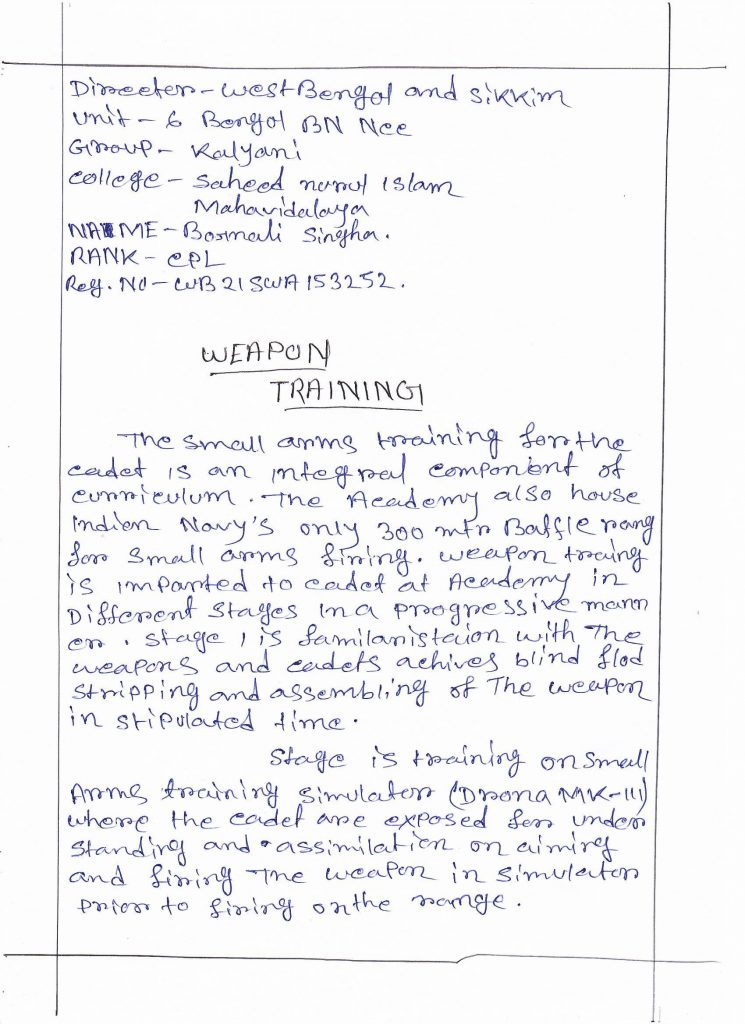 Director - West Bengal and Sikkim
Unit - 6 Bengal BN Ncc
Group - Kalyani
College - Saheed nurul Islam
Mahavidalaya
NAME - Bormali Singha.
RANK - CPL
Reg. No - WB21SWA153252.
WEAPON
TRAINING
The small arms training for the
cadet is an integral component of
curriculum. The Academy also house
Indian Navy's only 300 mtr Baffle rang
for small arms firing. weapon traing
is imparted to cadet at Academy in
Different stages in a progressive mann
er. stage 1 is familaristaion with The
weapons and cadets achives blind flod
stripping and assembling of The weapon
in stipulated time.
Stage is training on small
Arms training simulator (Drona MK-III)
where the cadet are exposed for under
standing and assimilation on aiming
and firing The weapon in simulator
prior to firing on the range.